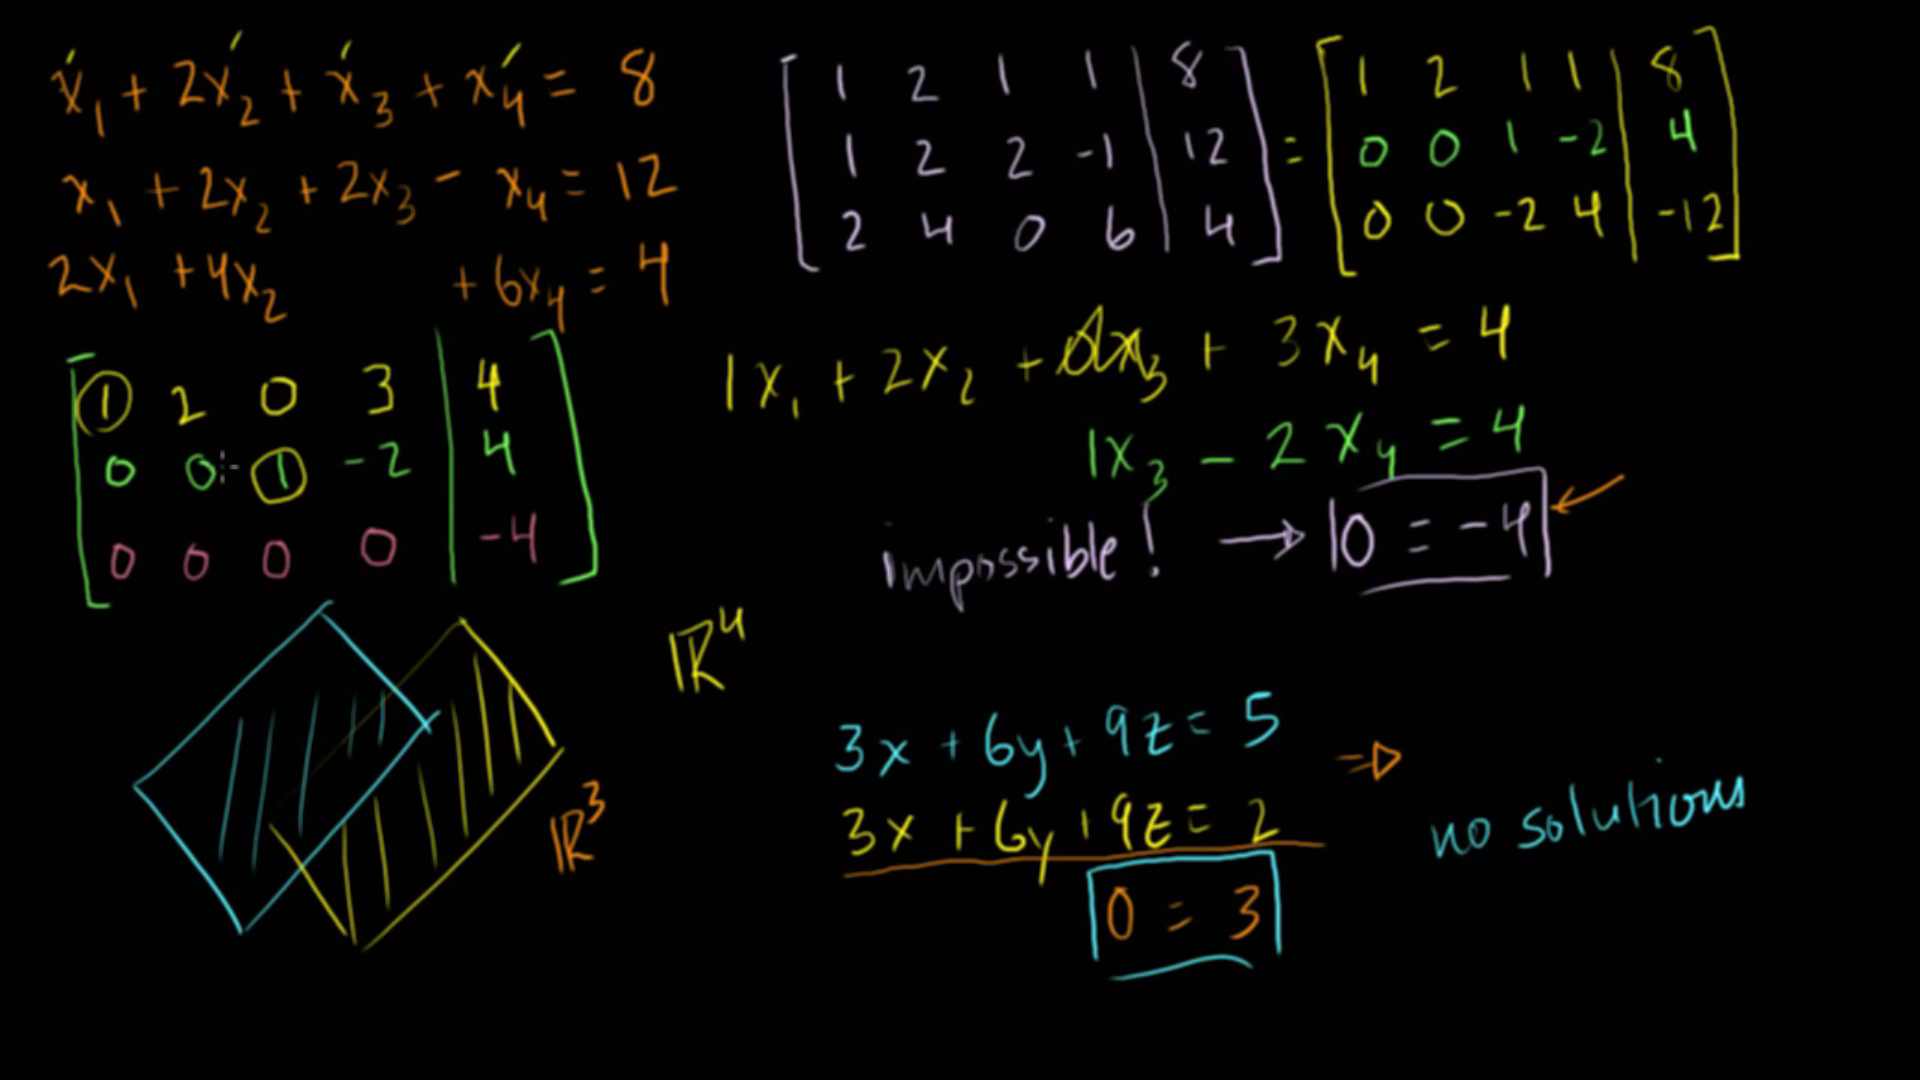 x₁ + 2x₂ + x₃ + x₄ = 8
x₁ + 2x₂ + 2x₃ - x₄ = 12
2x₁ + 4x₂ + 6x₄ = 4
[ 1 2 1 1 | 8 ] = [ 1 2 1 1 | 8 ]
[ 1 2 2 -1 | 12 ] [ 0 0 1 -2 | 4 ]
[ 2 4 0 6 | 4 ] [ 0 0 -2 4 | -12 ]
[ 1 2 0 3 | 4 ]
[ 0 0 1 -2 | 4 ]
[ 0 0 0 0 | -4 ]
1x₁ + 2x₂ + 0x₃ + 3x₄ = 4
1x₃ - 2x₄ = 4
impossible! → 0 = -4
ℝ⁴
ℝ³
3x + 6y + 9z = 5
3x + 6y + 9z = 2
0 = 3
⇒ no solutions